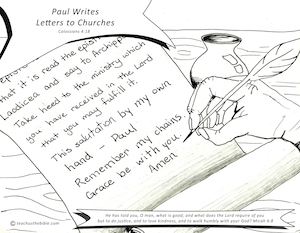 Paul Writes
Letters to Churches
Colossians 4:18
that it is read the
Laodicea and say to Archipp
Take heed to the ministry which
you have received in the Lord
that you may fulfill it.
This salutation by my own
hand - Paul
Remember my chains.
Grace be with you.
Amen
He has told you, O man, what is good; and what does the Lord require of you
but to do justice, and to love kindness, and to walk humbly with your God? Micah 6:8
©teachusthebible.com